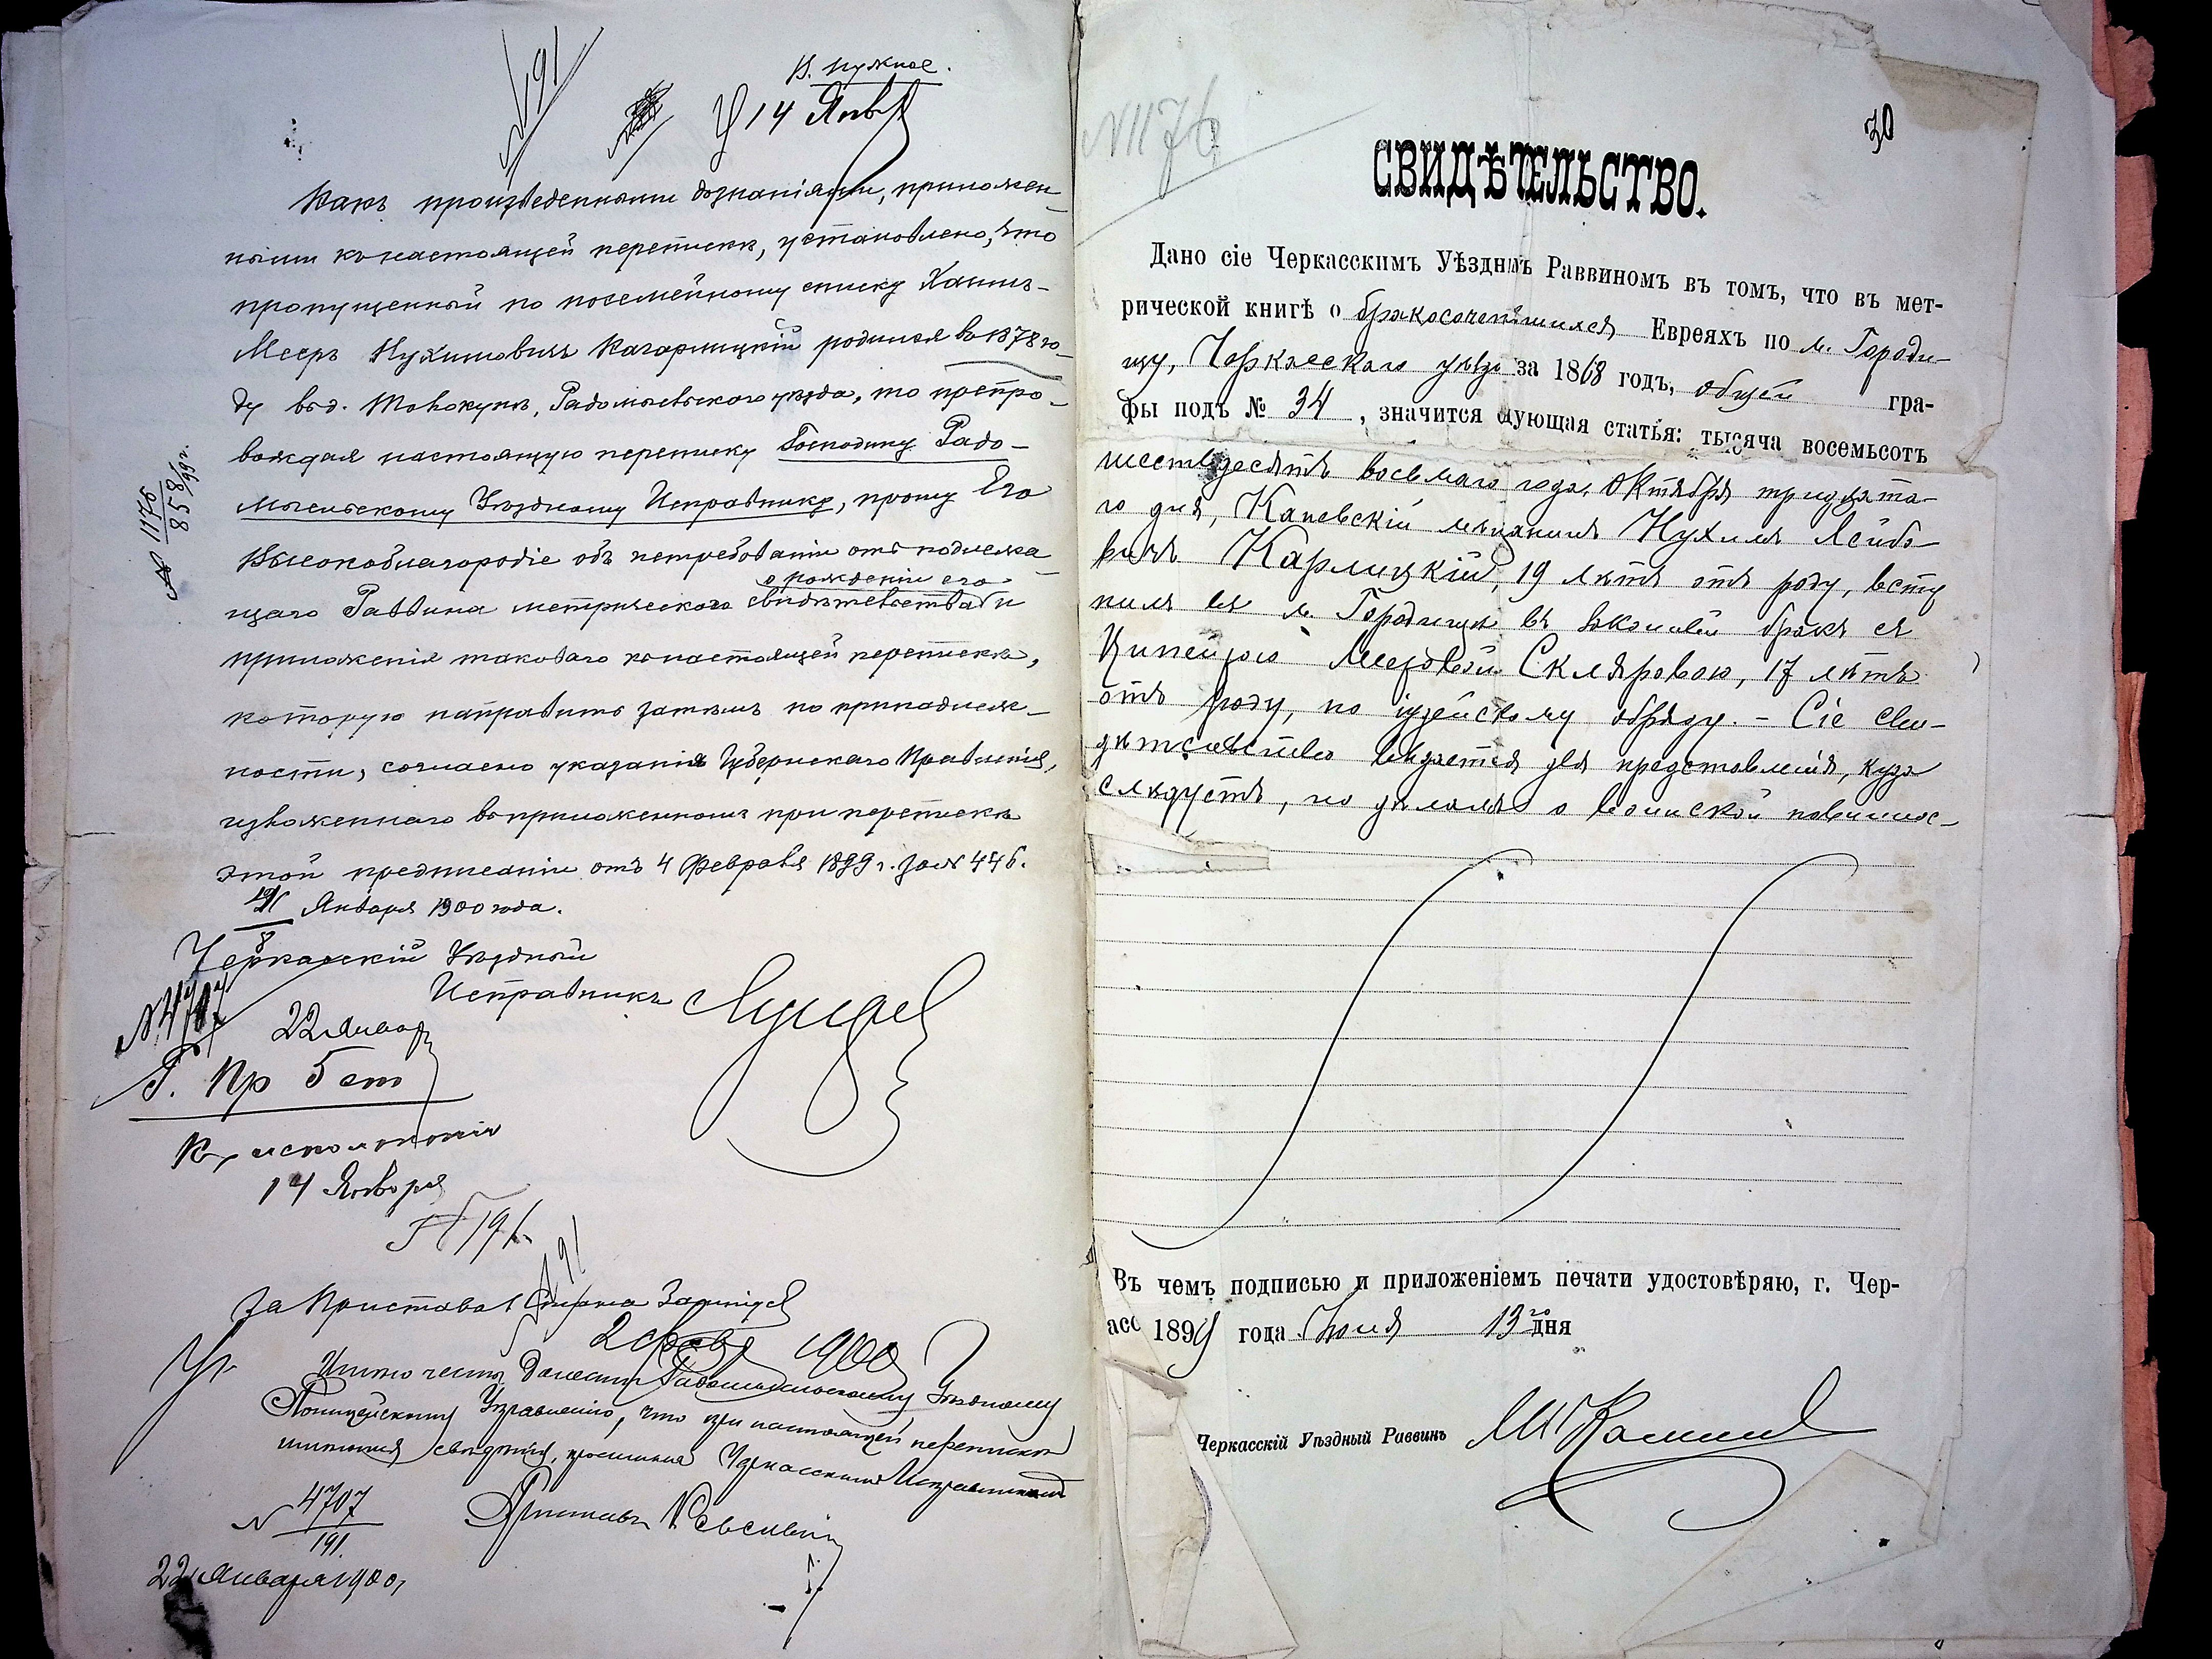 В. нужное.
№ 191
14 Янв
Какъ произведенными дознаніями, приложен-
ными къ настоящей перепискѣ, установлено, что
пропущенный по посемейному списку Хаимъ-
Мееръ Нухимовичъ Кагарлицкій родился въ 1878 го-
ду въ д. Радомысльскаго уѣзда, то препро-
вождая настоящую переписку Господину Радо-
мысльскому Уѣздному Исправнику, прошу Его
Высокоблагородіе объ истребованіи отъ подлежа-
о рожденіи его
щаго Раввина метрическаго свидѣтельства и
приложенія таковаго къ настоящей перепискѣ,
которую направить затѣмъ по принадлеж-
ности, согласно указанія Губернскаго Правленія,
изложеннаго въ приложенномъ при перепискѣ
этой предписаніи отъ 4 Февраля 1899 г. за № 446.
Января 1900 года.
Черкасскій Уѣздный
Исправникъ
№ 1176
858/99 г.
№ 4707
22 Январ
Г. Пр 5 ст
Къ исполненію
14 Января
№ 191.
За Пристава
№ 191
2 1900
Имѣю честь донести Радомысльскому Уѣздному
Полицейскому Управленію, что при настоящей перепискѣ
свѣдѣнія, Черкасскимъ Исправникомъ
№ 4707
191.
Приставъ
22 Января 1900,
№ 1176
30
СВИДѢТЕЛЬСТВО.
Дано сіе Черкасскимъ Уѣзднмъ Раввиномъ въ томъ, что въ мет-
рической книгѣ о бракосочетавшихся Евреяхъ по м. Городи-
щу, Черкасскаго уѣзда за 1868 годъ, общей гра-
фы подъ № 34, значится дующая статья: тысяча восемьсотъ
шестьдесятъ восьмаго года, Октября тридцата-
го дня, Каневскій мѣщанинъ Нухимъ Лейбо-
вичъ Карлицкій, 19 лѣтъ отъ роду, всту
пилъ въ м. Городищѣ въ законный бракъ съ
Ципойрою Мееровой Скляровою, 17 лѣтъ
отъ роду, по іудейскому обряду. - Сіе сви-
дѣтельство выдается для представленія, куда
слѣдуетъ, по дѣламъ о воинской повиннос-
Въ чемъ подписью и приложеніемъ печати удостовѣряю, г. Чер-
асс 1899 года Іюня 13го дня
Черкасскій Уѣздный Раввинъ